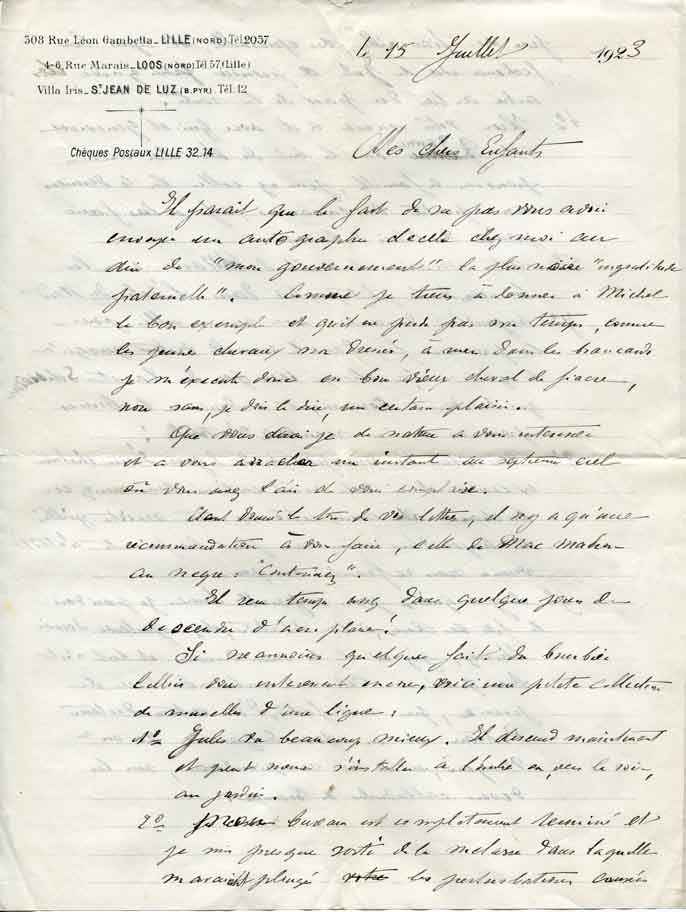 308 Rue Léon Gambetta_LILLE (NORD) Tél 2057
4-6, Rue Marais_LOOS (NORD) Tél 57 (Lille)
Villa Iris_St JEAN DE LUZ (B. PYR) Tél. 12
Chèques Postaux LILLE 32.14
le 15 Juillet 1923
Mes chers Enfants
Il parait que le fait de ne pas vous avoir
envoyé un autographe décèle chez moi au
dire de "mon gouvernement" la plus noire "ingratitude
fraternelle". Comme je tiens à donner à Michel
le bon exemple et qu'il ne perde pas son temps, comme
les jeunes chevaux non dressés, à ruer dans les brancards
je m'exécute donc en bon vieux cheval de fiacre,
non sans, je dois le dire, un certain plaisir.
Que vous dirai je de nature à vous intéresser
et à vous arracher un instant au septième ciel
où vous avez l'air de vous complaire.
Etant donné le ton de vos lettres, il n'y a qu'une
recommandation à vous faire, celle de Mac Mahon
au nègre: "Continuez".
Il sera temps assez dans quelques jours de
descendre d'aéroplane!
Si néanmoins quelques faits du bourbier
Lillois vous intéressent encore, voici une petite collection
de nouvelles d'une ligne:
1o_ Jules va beaucoup mieux. Il descend maintenant
et peut nous s'installer à l'ombre ou, vers le soir,
au jardin.
2o_ bureau est complètement terminé et
je suis presque sorti de la mélasse dans laquelle
m'avaient plongé les perturbations causées